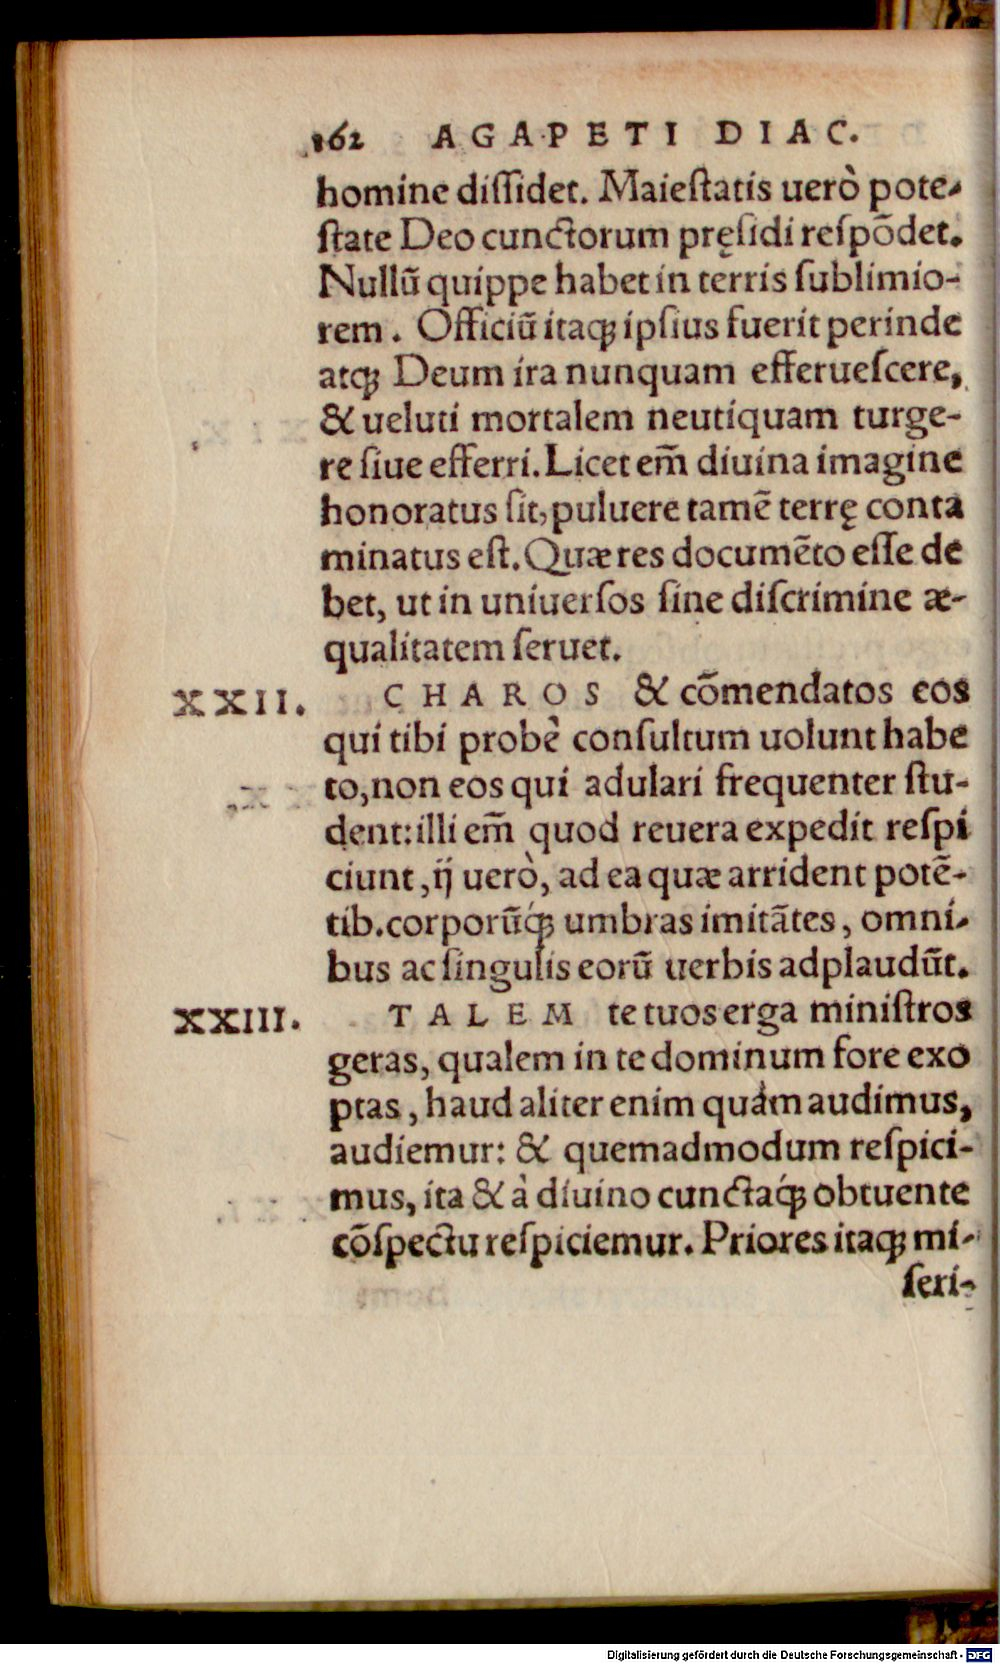 162 AGAPETI DIAC.
homine diſſidet. Maieſtatis uerò pote-
ſtate Deo cunctorum pręſidi reſpõdet.
Nullũ quippe habet in terris ſublimio-
rem. Officiũ itaqꝫ ipſius fuerit perinde
atqꝫ Deum ira nunquam efferueſcere,
& ueluti mortalem neutiquam turge-
re ſiue efferri. Licet em̃ diuina imagine
honoratus ſit, puluere tamẽ terrę conta
minatus eſt. Quæ res documẽto eſſe de
bet, ut in uniuerſos ſine diſcrimine æ-
qualitatem ſeruet.
XXII. CHAROS & cõmendatos eos
qui tibi probè conſultum uolunt habe
to, non eos qui adulari frequenter ſtu-
dent: illi em̃ quod reuera expedit reſpi
ciunt, ij uerò, ad ea quæ arrident potẽ-
tib. corporũq́ꝫ umbras imitãtes, omni-
bus ac ſingulis eorũ uerbis adplaudũt.
XXIII. TALEM te tuos erga miniſtros
geras, qualem in te dominum fore exo
ptas, haud aliter enim quàm audimus,
audiemur: & quemadmodum reſpici-
mus, ita & à diuino cunctaq́ꝫ obtuente
cõſpectu reſpiciemur. Priores itaqꝫ mi-
ſeri-
Digitalisierung gefördert durch die Deutsche Forschungsgemeinschaft - DFG